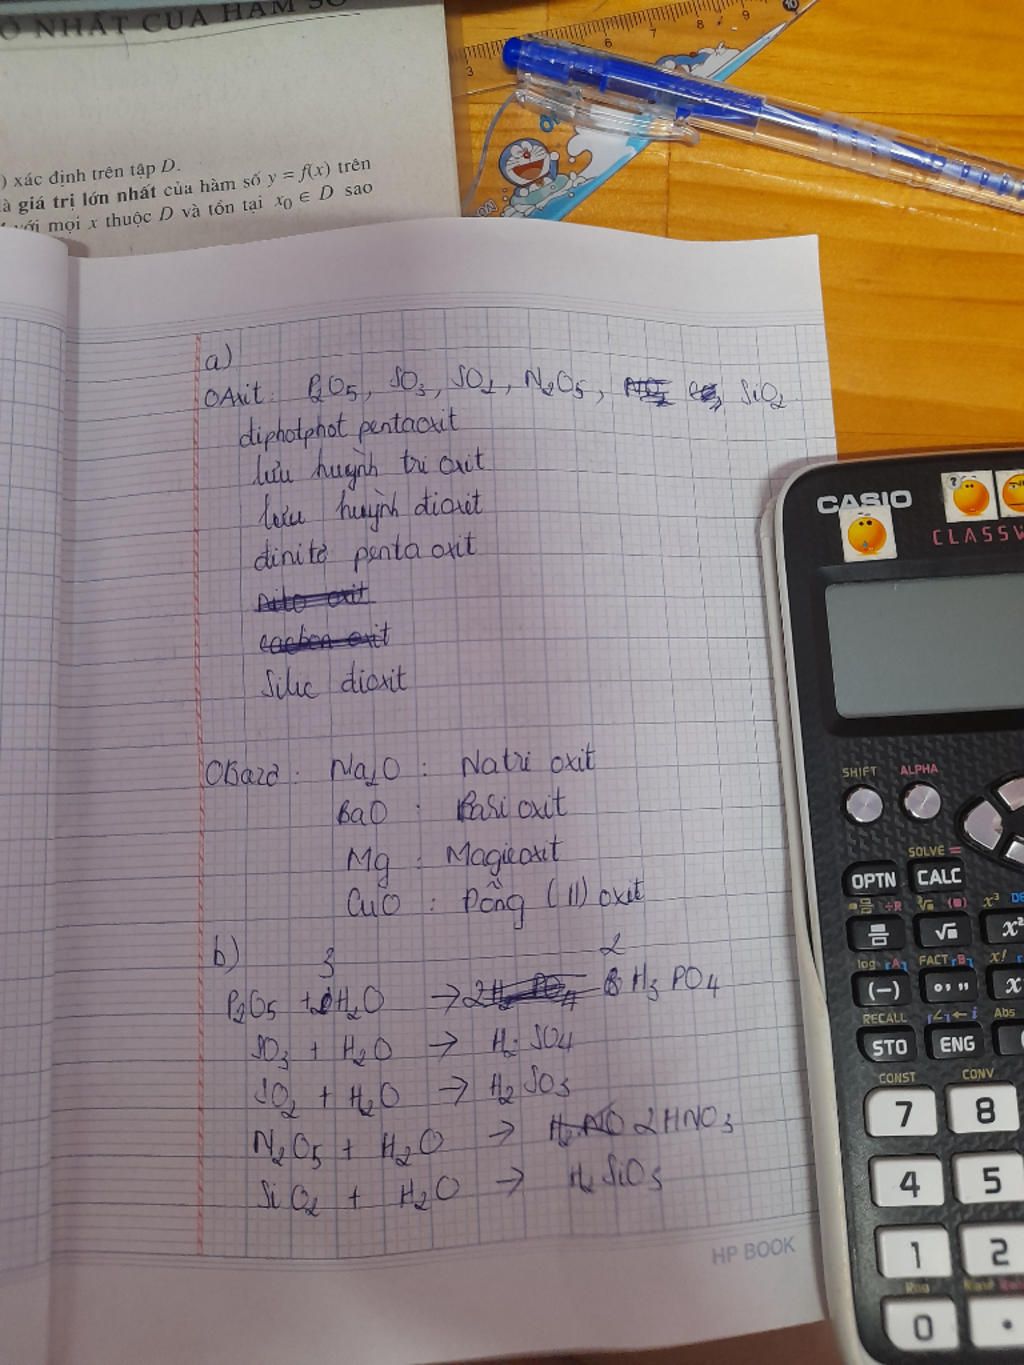 Ỏ NHẤT CỦA HÀM SỐ
) xác định trên tập D.
à giá trị lớn nhất của hàm số y = f(x) trên
với mọi x thuộc D và tồn tại x₀ ∈ D sao
3 6 7 8 9 10
a)
OAxit: P₂O₅, SO₃, SO₂, N₂O₅, SiO₂
diphotphot pentaoxit
lưu huỳnh tri oxit
lưu huỳnh đioxit
dinitơ penta oxit
nito oxit
cacbon oxit
Silic dioxit
OBazơ: Na₂O : Natri oxit
BaO : Bari oxit
Mg : Magieoxit
CuO : Đồng (II) oxit
b) 3 2
P₂O₅ + H₂O → H₃PO₄
SO₃ + H₂O → H₂SO₄
SO₂ + H₂O → H₂SO₃
N₂O₅ + H₂O → 2HNO₃
SiO₂ + H₂O → H₂SiO₃
HP BOOK
CASIO
CLASSW
SHIFT ALPHA
SOLVE =
OPTN CALC
÷R x³
√ x²
log FACT x!
(–) ° ’ ”
RECALL Abs
STO ENG
CONST CONV
7 8
4 5
1 2
0 •